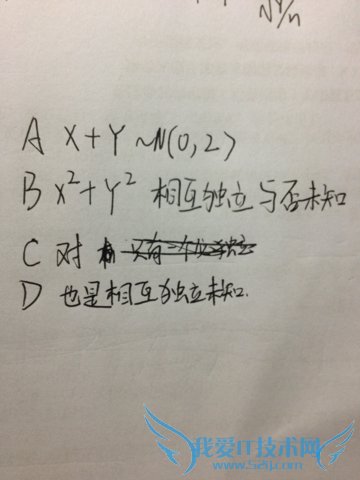 √Y/n
A X+Y~N(0,2)
B X²+Y² 相互独立与否未知
C 对
D 也是相互独立未知.
我爱IT技术网
www.52ij.com